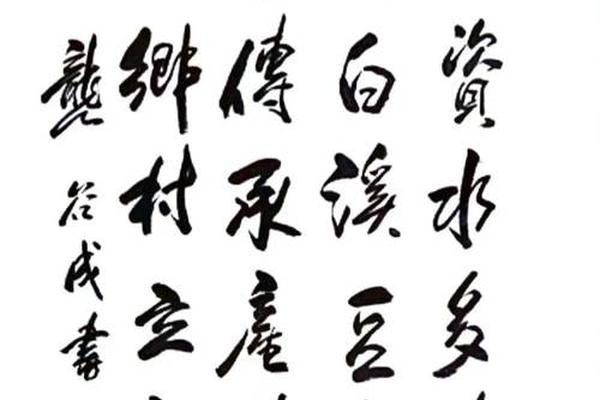 資水多
白溪豆
傳承
鄉村立
龔谷成書